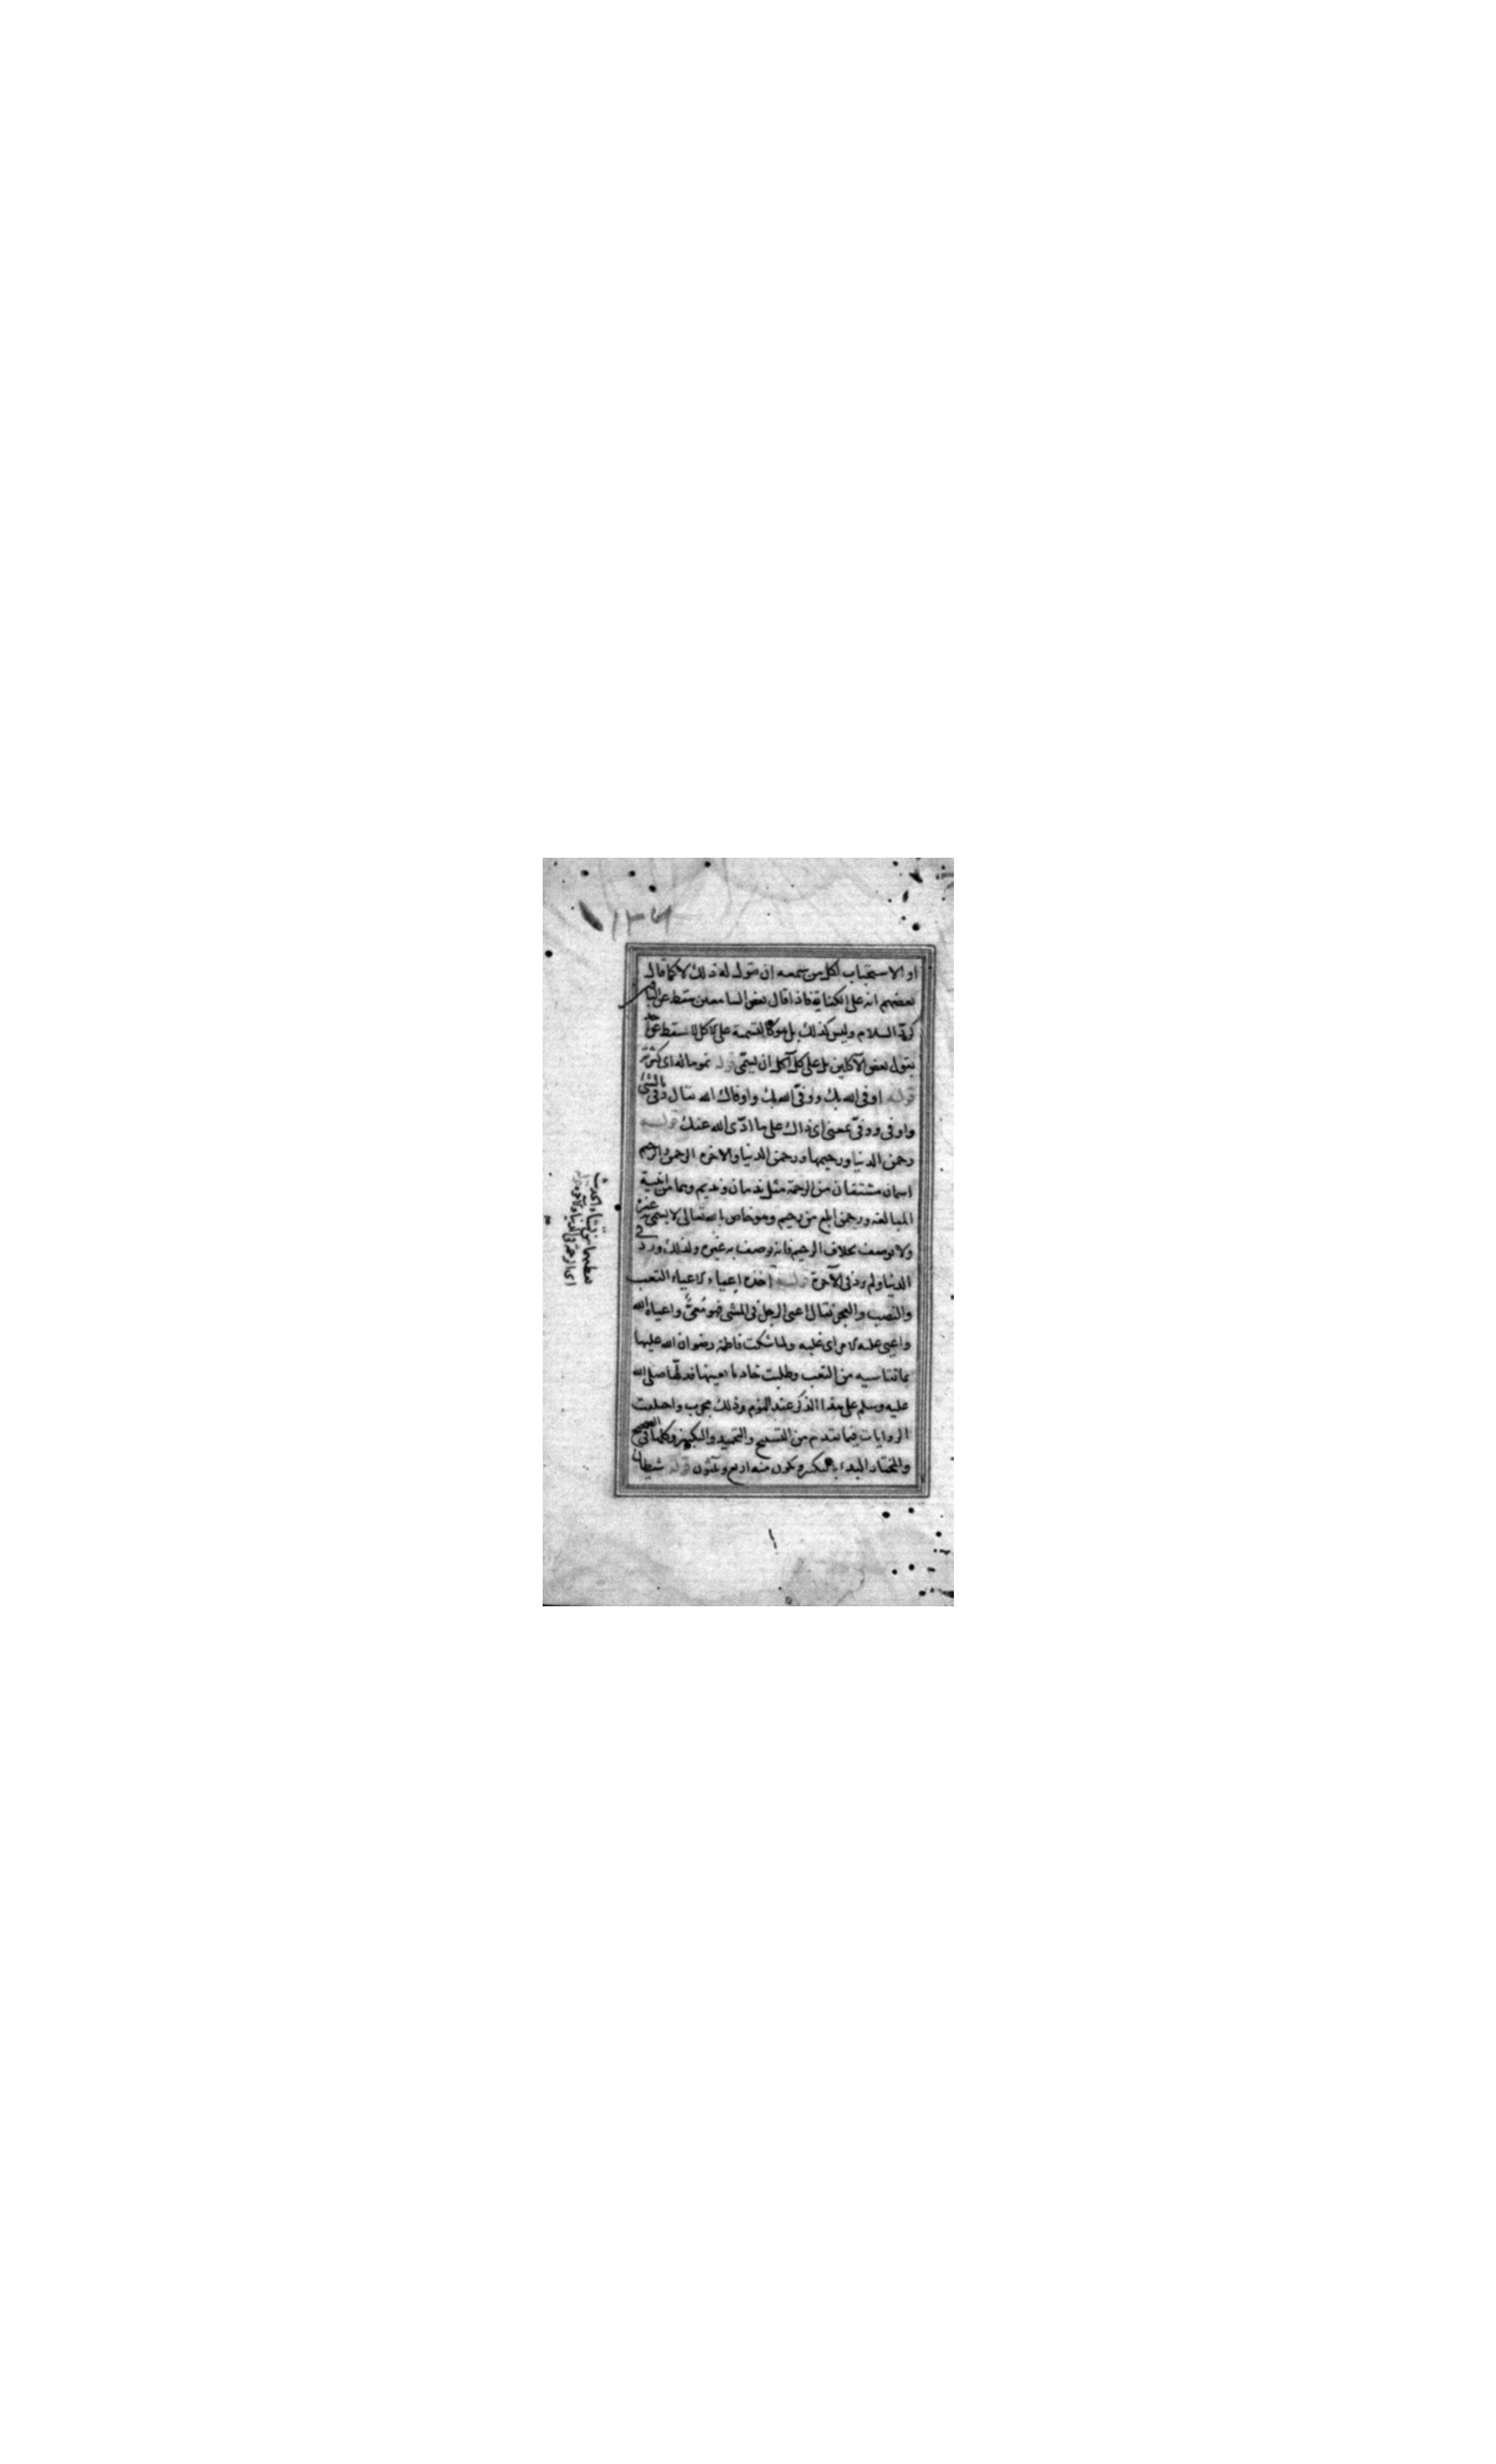 او الاستحباب لكل من سمعه ان يقول له ذلك لا كما قاله
بعضهم انه على الكفاية فاذا قال بعض السامعين سقط عن الباقى
كرد السلام وليس كذلك بل هو كالتسمية على الاكل لا يسقط عن
بقول بعض الآكلين بل على كل آكل ان يسمى قوله نمو ماله اى كثرته
قوله اوفى الله بك ووفى الله بك واوفاك الله يقال وفى بالشئ
واوفى ووفى بمعنى اى ذاك على ما ادى الله عنك قوله
رحمن الدنيا ورحيمها ورحمن الدنيا والاخره الرحمن والرحيم
اسمان مشتقان من الرحمة مثل ندمان ونديم وهما من ابنية
المبالغه ورحمن ابلغ من رحيم وهو خاص بالله تعالى لا يسمى به غيره
ولا يوصف بخلاف الرحيم فانه يوصف به غيره ولذلك ورد فى
الدنيا ولم يرد فى الآخرة قوله اخذه اعياء الاعياء التعب
والنصب والعجز يقال اعيى الرجل فى المشى فهو معى واعياه الله
واعيى عليه الامر اى غلبه ولما شكت فاطمة رضوان الله عليها
ما تقاسيه من التعب وطلبت خادما يعينها فدلها صلى الله
عليه وسلم على هذا الذكر عند النوم وذلك مجرب واختلفت
الروايات فيما تقدم من التسبيح والتحميد والتكبير وكلها فى الصحيح
والمختار البدء بالتكبير يكون منه اربع وثلثون قوله شيطان
تعطيهما من تشاء الحديث
اى الرحمة فى الدنيا والآخرة